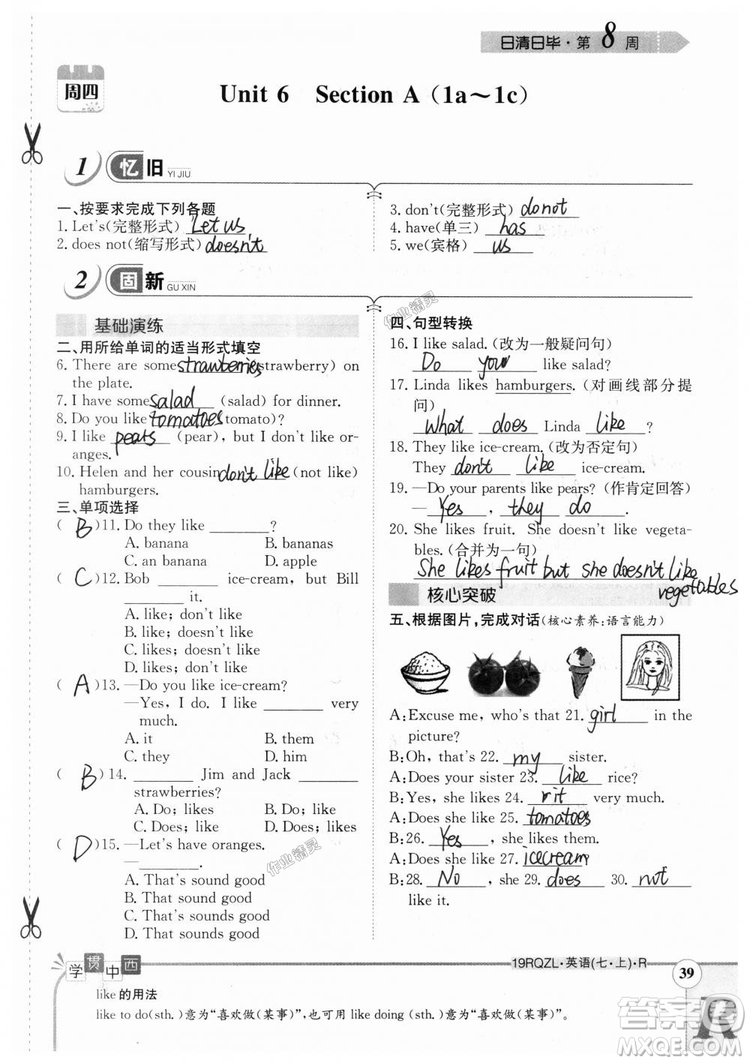 日清日毕·第8周
周四
Unit 6 Section A (1a～1c)
1 忆旧 YI JIU
一、按要求完成下列各题
1. Let's(完整形式) Let us
2. does not(缩写形式) doesn't
3. don't(完整形式) do not
4. have(单三) has
5. we(宾格) us
2 固新 GU XIN
基础演练
二、用所给单词的适当形式填空
6. There are some strawberries(strawberry) on
the plate.
7. I have some salad (salad) for dinner.
8. Do you like tomatoes(tomato)?
9. I like pears (pear), but I don't like or-
anges.
10. Helen and her cousin don't like (not like)
hamburgers.
三、单项选择
( B )11. Do they like ________?
A. banana B. bananas
C. an banana D. apple
( C )12. Bob ________ ice-cream, but Bill
________ it.
A. like; don't like
B. like; doesn't like
C. likes; doesn't like
D. likes; don't like
( A )13. —Do you like ice-cream?
—Yes, I do. I like ________ very
much.
A. it B. them
C. they D. him
( B )14. ________ Jim and Jack ________
strawberries?
A. Do; likes B. Do; like
C. Does; like D. Does; likes
( D )15. —Let's have oranges.
—________.
A. That sound good
B. That's sounds good
C. That's sound good
D. That sounds good
四、句型转换
16. I like salad. (改为一般疑问句)
Do you like salad?
17. Linda likes hamburgers. (对画线部分提
问)
What does Linda like?
18. They like ice-cream. (改为否定句)
They don't like ice-cream.
19. —Do your parents like pears? (作肯定回答)
—Yes, they do.
20. She likes fruit. She doesn't like vegeta-
bles. (合并为一句)
She likes fruit but she doesn't like
vegetables
核心突破
五、根据图片,完成对话(核心素养:语言能力)
A: Excuse me, who's that 21. girl in the
picture?
B: Oh, that's 22. my sister.
A: Does your sister 23. like rice?
B: Yes, she likes 24. rit very much.
A: Does she like 25. tomatoes?
B: 26. Yes, she does.
A: Does she like 27. icecream?
B: 28. No, she 29. does 30. not
like it.
学贯中西
19RQZL·英语(七·上)·R
39
like 的用法
like to do(sth.)意为“喜欢做(某事)”,也可用 like doing (sth.)意为“喜欢做(某事)”。
作业精灵
作业精灵
MXQE.COM